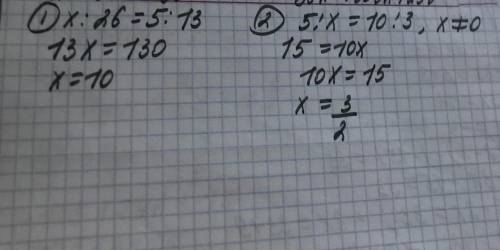 ① x : 26 = 5 : 13
13x = 130
x = 10
② 5 : x = 10 : 3, x ≠ 0
15 = 10x
10x = 15
x = 3/2